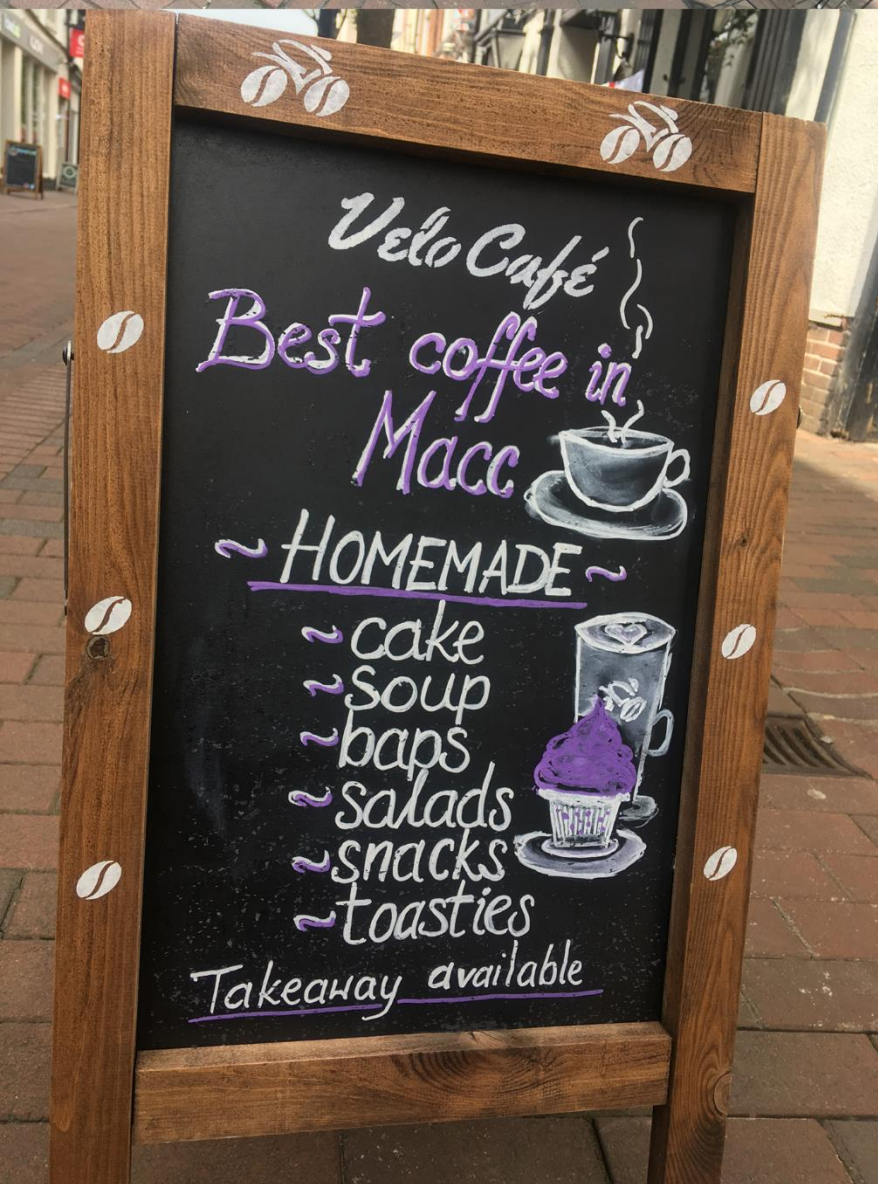 Velo Café
Best coffee in
Macc
~ HOMEMADE ~
~ cake
~ soup
~ baps
~ salads
~ snacks
~ toasties
Takeaway available